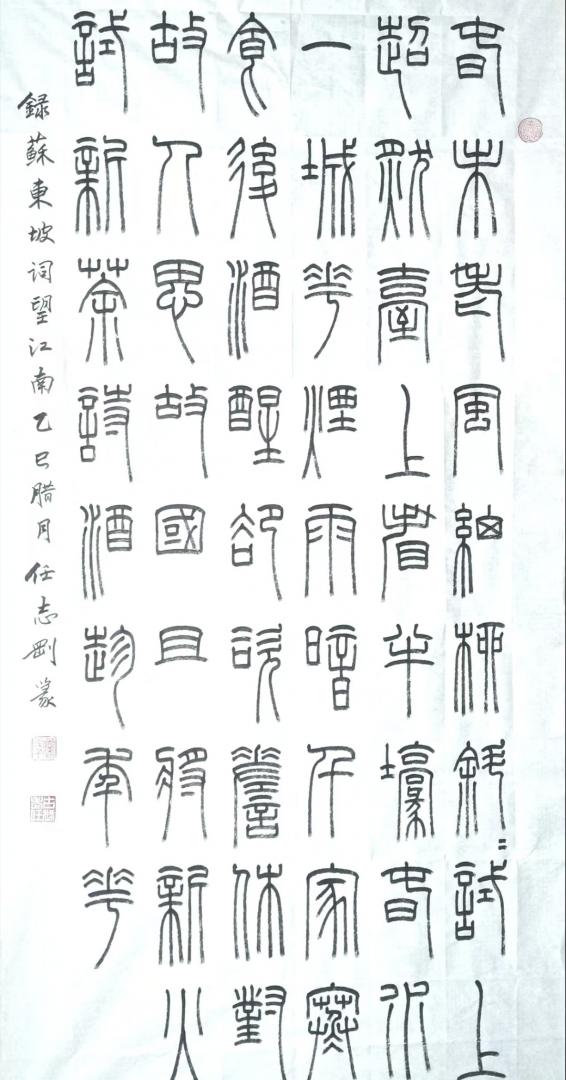 春未老風細柳斜〻試上
超然臺上看半壕春水
一城華煙雨暗千家寒
食後酒醒卻咨嗟休對
故人思故國且將新火
試新茶詩酒趁年華
録蘇東坡词望江南乙巳腊月任志剛篆